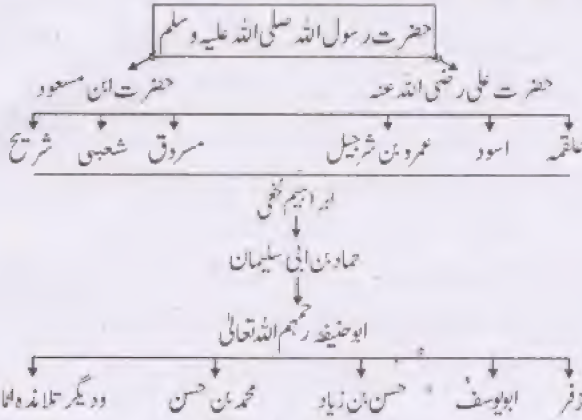 حضرت رسول اللہ صلی اللہ علیہ وسلم
حضرت علی رضی اللہ عنہ حضرت ابن مسعود
علقمہ اسود عمرو بن شرجیل مسروق شعبی شریح
ابراہیم نخعی
حماد بن ابی سلیمان
ابوحنیفہ رحمہم اللہ تعالیٰ
زفر ابویوسف حسن بن زیاد محمد بن حسن ودیگر تلامذہ